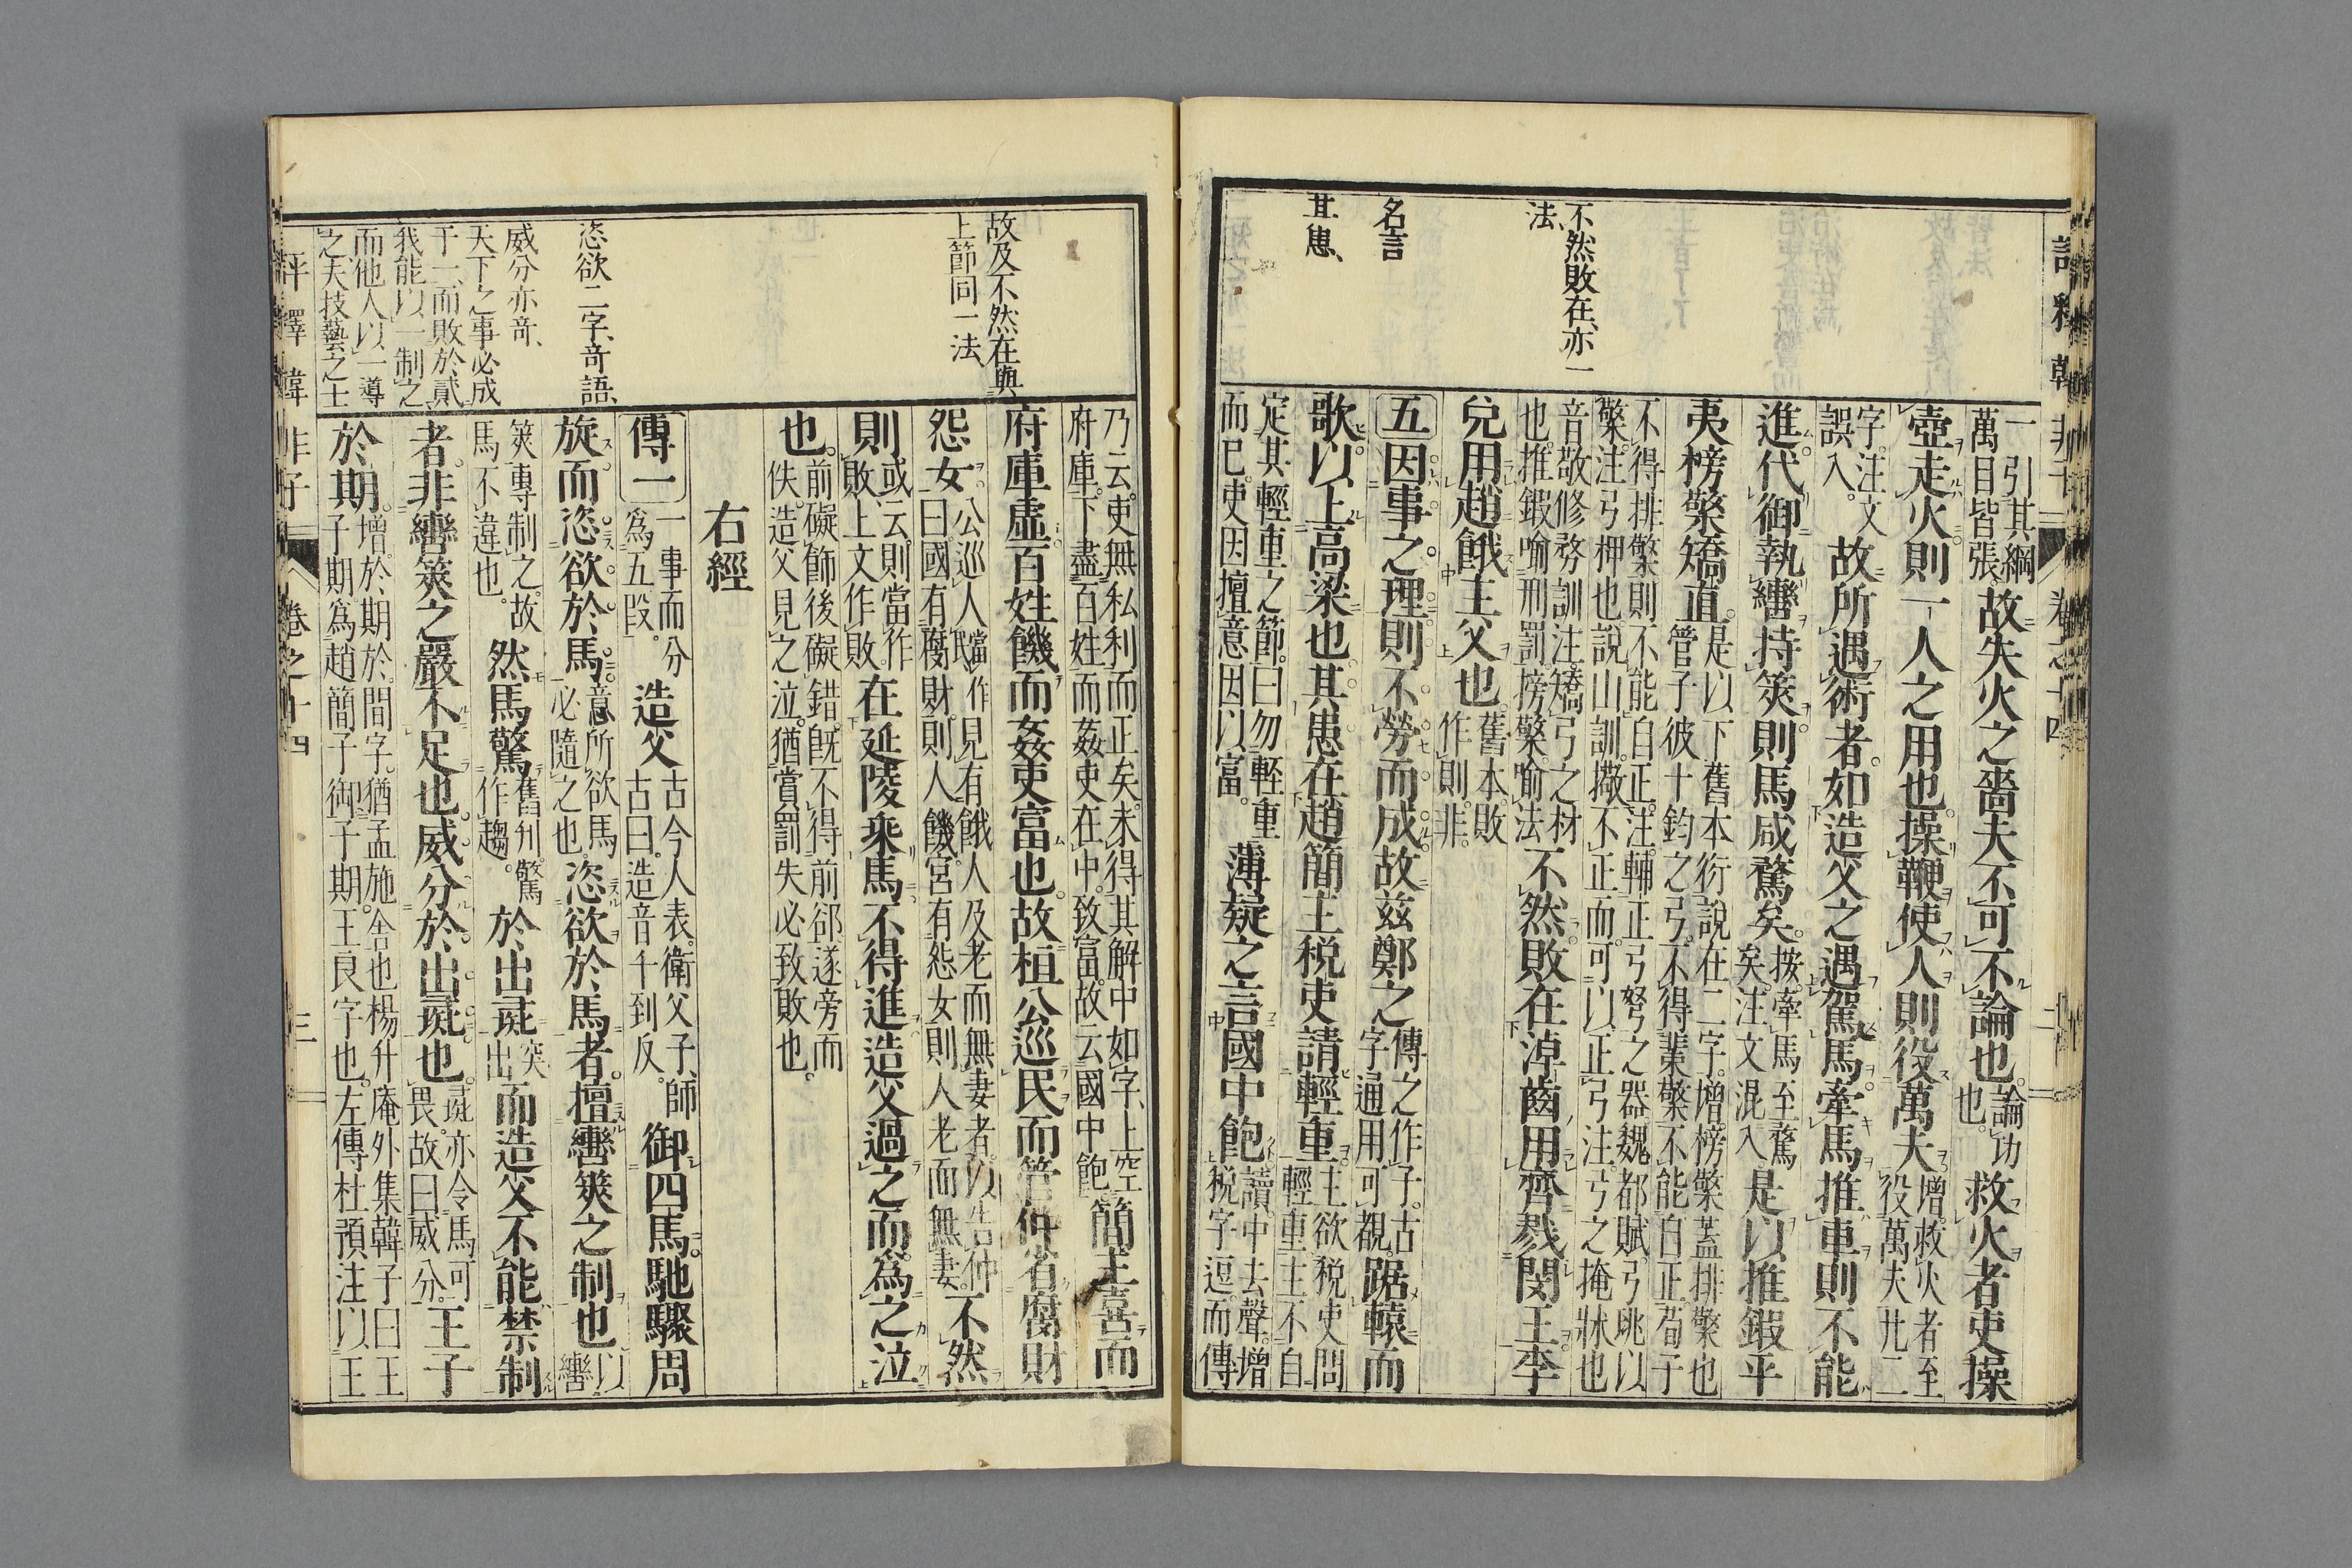 不然敗在亦一
法、
名言
其患、
一引其綱
萬目皆張故失火之嗇夫不可不論也論功
也。救火者吏操
壺走火則一人之用也操鞭使人則役萬夫增救火者至
役萬夫卅二
字注文
誤入。故所遇術者如造父之遇駕馬牽馬推車則不能
進代御執轡持筴則馬咸騖矣。按牽馬至騖
矣注文混入是以推鍜平
夷榜檠矯直是以下舊本衍說在二字增榜檠蓋排檠也
管子彼十鈞之弓不得棐檠不能自正荀子
不得排檠則不能自正注輔正弓弩之器魏都賦弓珧以
檠注弓柙也說山訓撽不正而可以正弓注弓之掩牀也
音敬修務訓注矯弓之材
也推鍜喻刑罰榜檠喻法不然敗在淖齒用齊戮閔王李
兌用趙餓主父也舊本敗
作則非。
五因事之理則不勞而成故茲鄭之傳之作子古
字通用可覩踞轅而
歌以上高梁也其患在趙簡主稅吏請輕重主欲稅吏問
輕重主不自
定其輕重之節曰勿輕重
而已吏因擅意因以富。薄疑之言國中飽讀中去聲增
稅字逗而傳
評釋韓非子 卷之十四 三
故及不然在與
上節同一法、
恣欲二字奇語、
威分亦奇、
天下之事必成
于一而敗於貳
我能以一制之
而他人以一導
之夫技藝之士
乃云吏無私利而正矣未得其解中如字上空
府庫下盡百姓而姦吏在中致富故云國中飽簡主喜而
府庫虛百姓餓而姦吏富也故桓公巡民而管仲省腐財
怨女公巡人當作民見有餓人及老而無妻者以告仲
曰國有腐財則人饑宮有怨女則人老而無妻不然
則或云則當作
敗上文作敗在延陵乘馬不得進造父過之而為之泣
也前礙飾後礙錯既不得前郤遂旁而
佚造父見之泣猶賞罰失必致敗也。
右經
傳一一事而分
為五段。造父古今人表衛父子師
古曰造音千到反。御四馬馳驟周
旋而恣欲於馬意所欲馬
必隨之也恣欲於馬者擅轡筴之制也以
轡
筴專制之故
馬不違也。然馬驚舊刋驚
作趨。於出彘突
出而造父不能禁制
者非轡筴之嚴不足也威分於出彘也彘亦令馬可
畏故曰威分。王子
於期增於期於間字猶孟施舍也楊升庵外集韓子曰王
子期為趙簡子御子期王良字也左傳杜預注以王